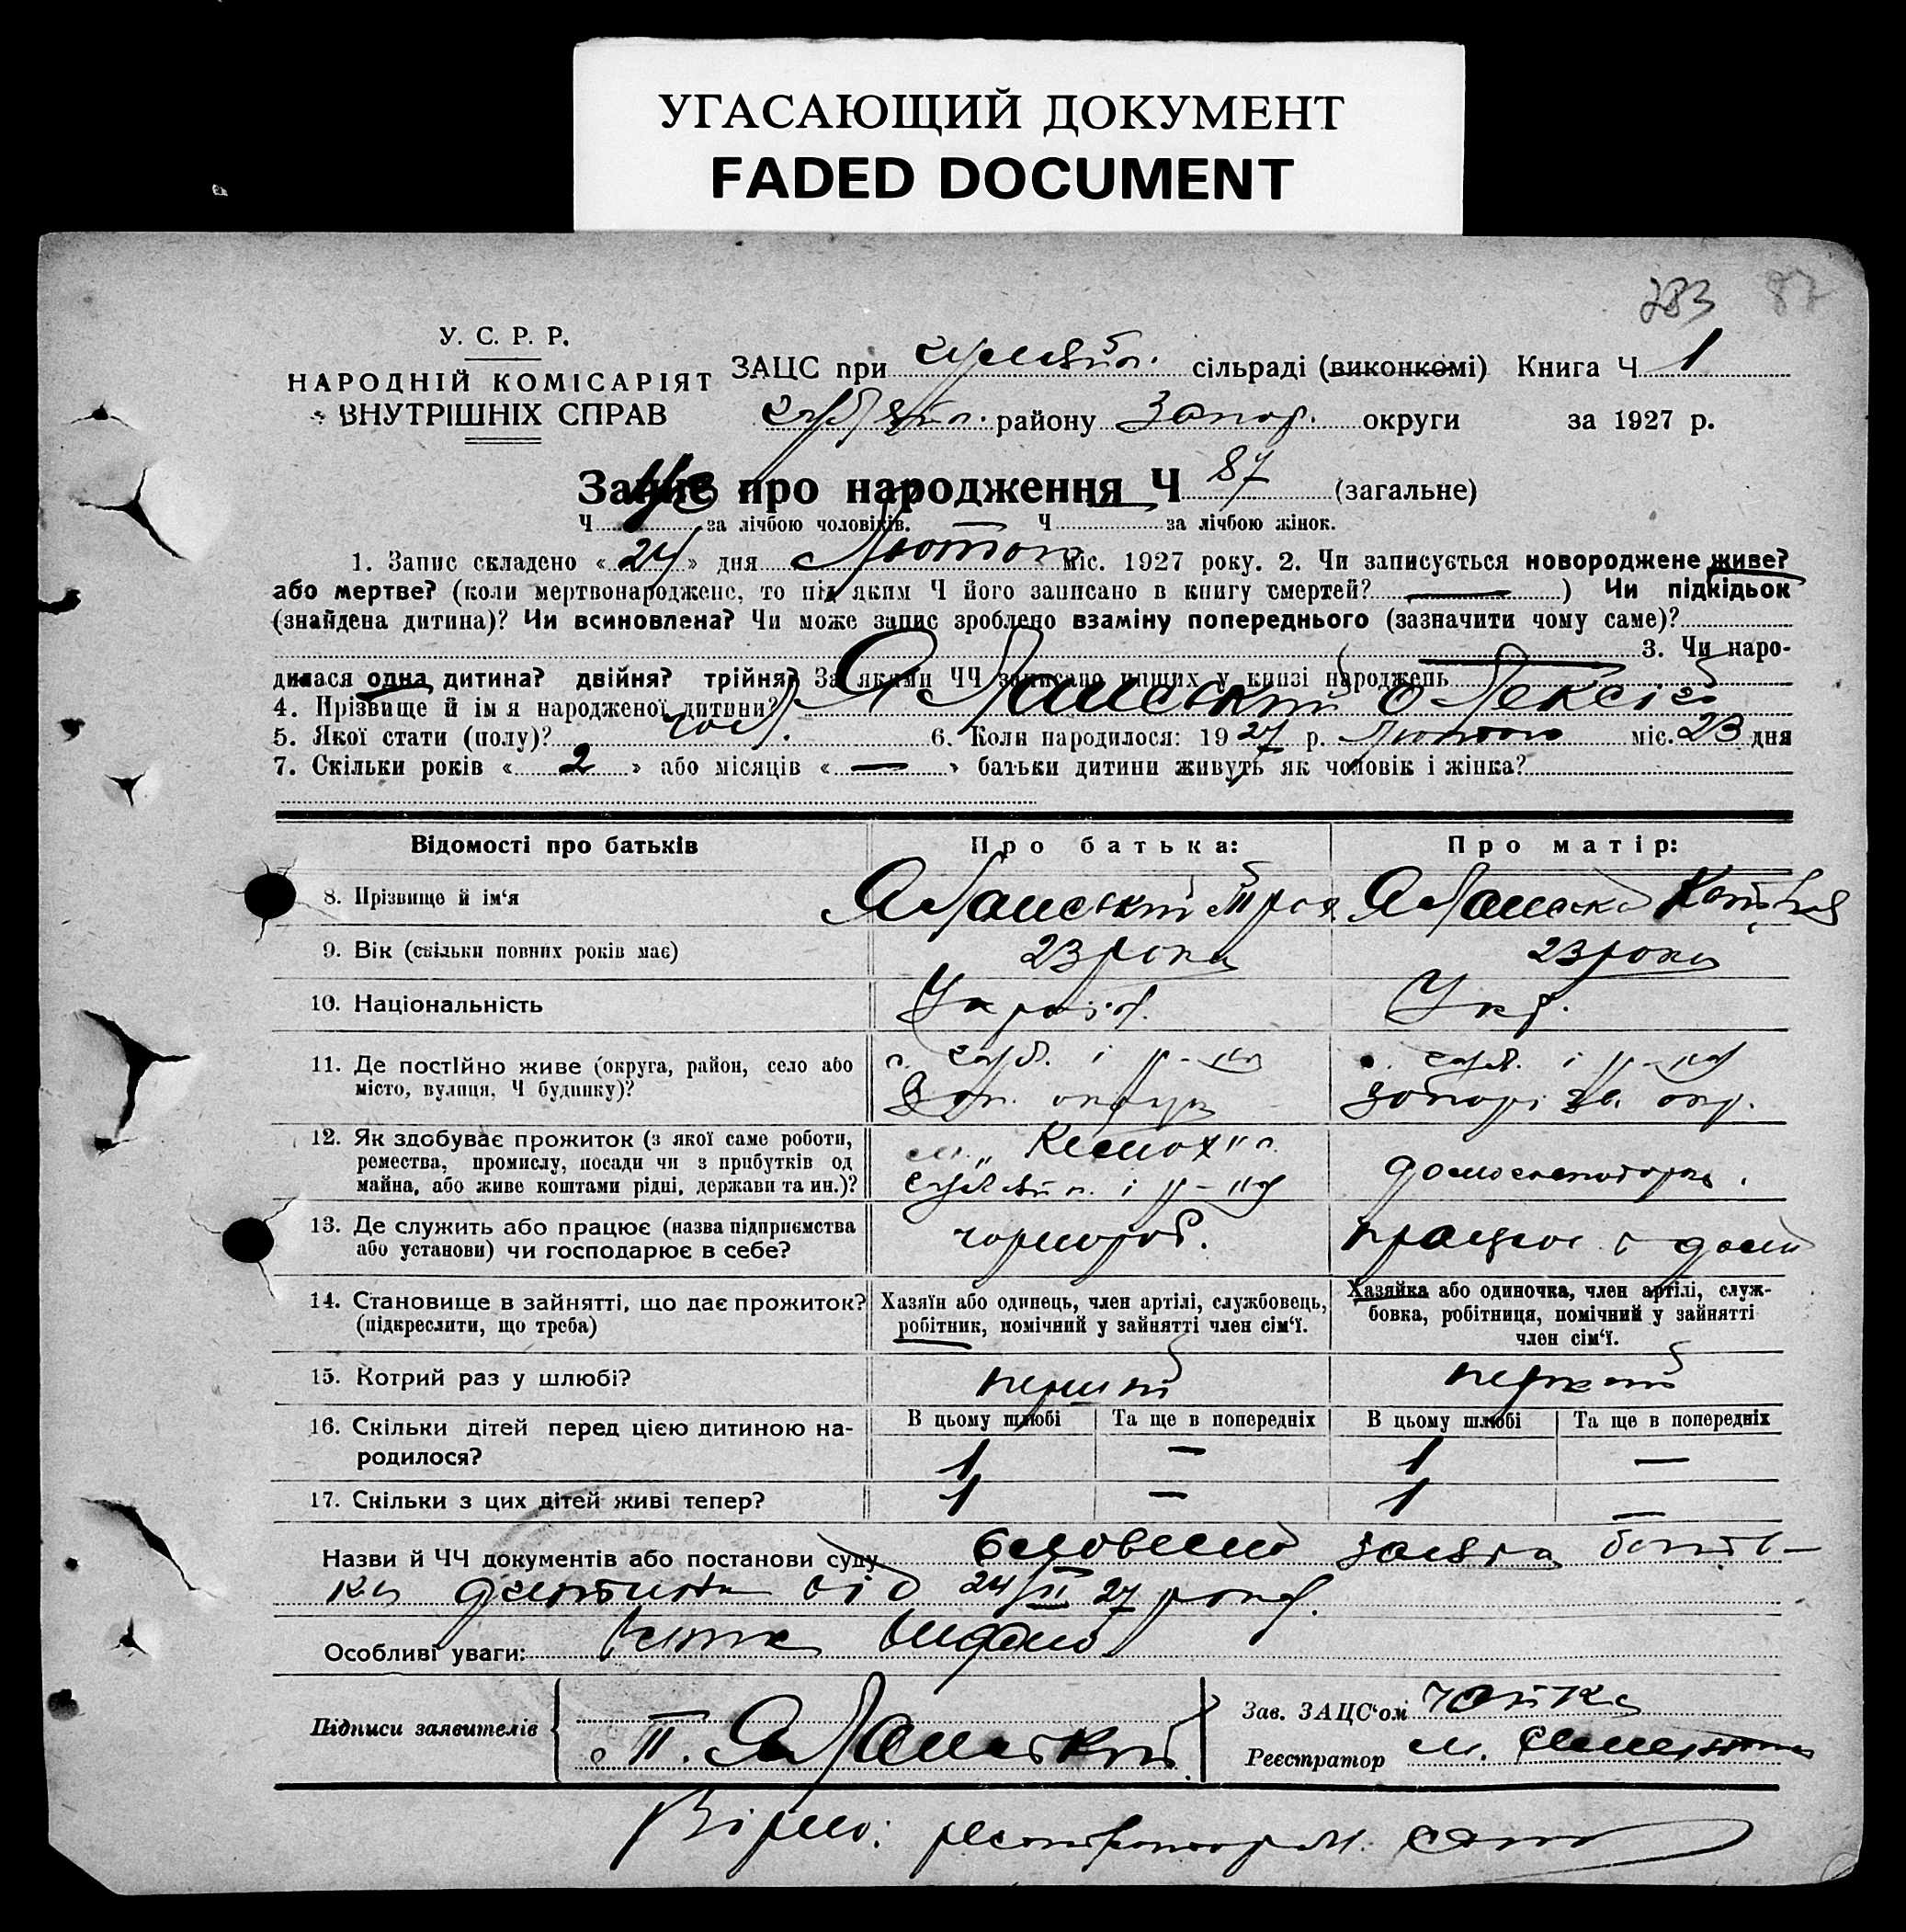 УГАСАЮЩИЙ ДОКУМЕНТ
FADED DOCUMENT
283 87
У. С. Р. Р.
НАРОДНІЙ КОМІСАРІЯТ
ВНУТРІШНІХ СПРАВ
ЗАЦС при сільраді (виконкомі) Книга Ч 1
району Запор. округи за 1927 р.
Запис про народження Ч 87 (загальне)
Ч за лічбою чоловіків. — Ч за лічбою жінок.
1. Запис складено « 24 » дня Лютого міс. 1927 року. 2. Чи записується новороджене живе?
або мертве? (коли мертвонароджене, то під яким Ч його записано в книгу смертей? — ) Чи підкідьок
(знайдена дитина)? Чи всиновлена? Чи може запис зроблено взаміну попереднього (зазначити чому саме)?
3. Чи наро-
дилася одна дитина? двійня? трійня? За якими ЧЧ записано инших у книзі народжень —
4. Прізвище й ім я народженої дитини? Олексій
5. Якої стати (полу)? чол. 6. Коли народилося: 19 27 р. Лютого міс. 23 дня
7. Скільки років « 2 » або місяців « — » батьки дитини живуть як чоловік і жінка?
Відомості про батьків Про батька: Про матір:
8. Прізвище й ім‘я
9. Вік (скільки повних років має) 23 роки 23 роки
10. Національність Україн. Укр.
11. Де постійно живе (округа, район, село або
місто, вулиця, Ч будинку)?
Зап. округи окр.
12. Як здобуває прожиток (з якої саме роботи,
ремества, промислу, посади чи з прибутків од
майна, або живе коштами рідні, держави та ин.)?
домогосподарка.
13. Де служить або працює (назва підприємства
або установи) чи господарює в себе?
чорнороб. працює в домі
14. Становище в зайнятті, що дає прожиток?
(підкреслити, що треба)
Хазяїн або одинець, член артілі, службовець,
робітник, помічний у зайнятті член сім‘ї.
Хазяйка або одиночка, член артілі, служ-
бовка, робітниця, помічний у зайнятті
член сім‘ї.
15. Котрий раз у шлюбі? перший перший
16. Скільки дітей перед цією дитиною на-
родилося?
В цьому шлюбі Та ще в попередніх В цьому шлюбі Та ще в попередніх
1 — 1 —
17. Скільки з цих дітей живі тепер? 1 — 1 —
Назви й ЧЧ документів або постанови суду словесна заява бать-
ка дитини від 24/II 27 року.
Особливі уваги: видано
Підписи заявителів П.
Зав. ЗАЦС‘ом Чайка
Реєстратор М.
Вірно: реєстратор М.